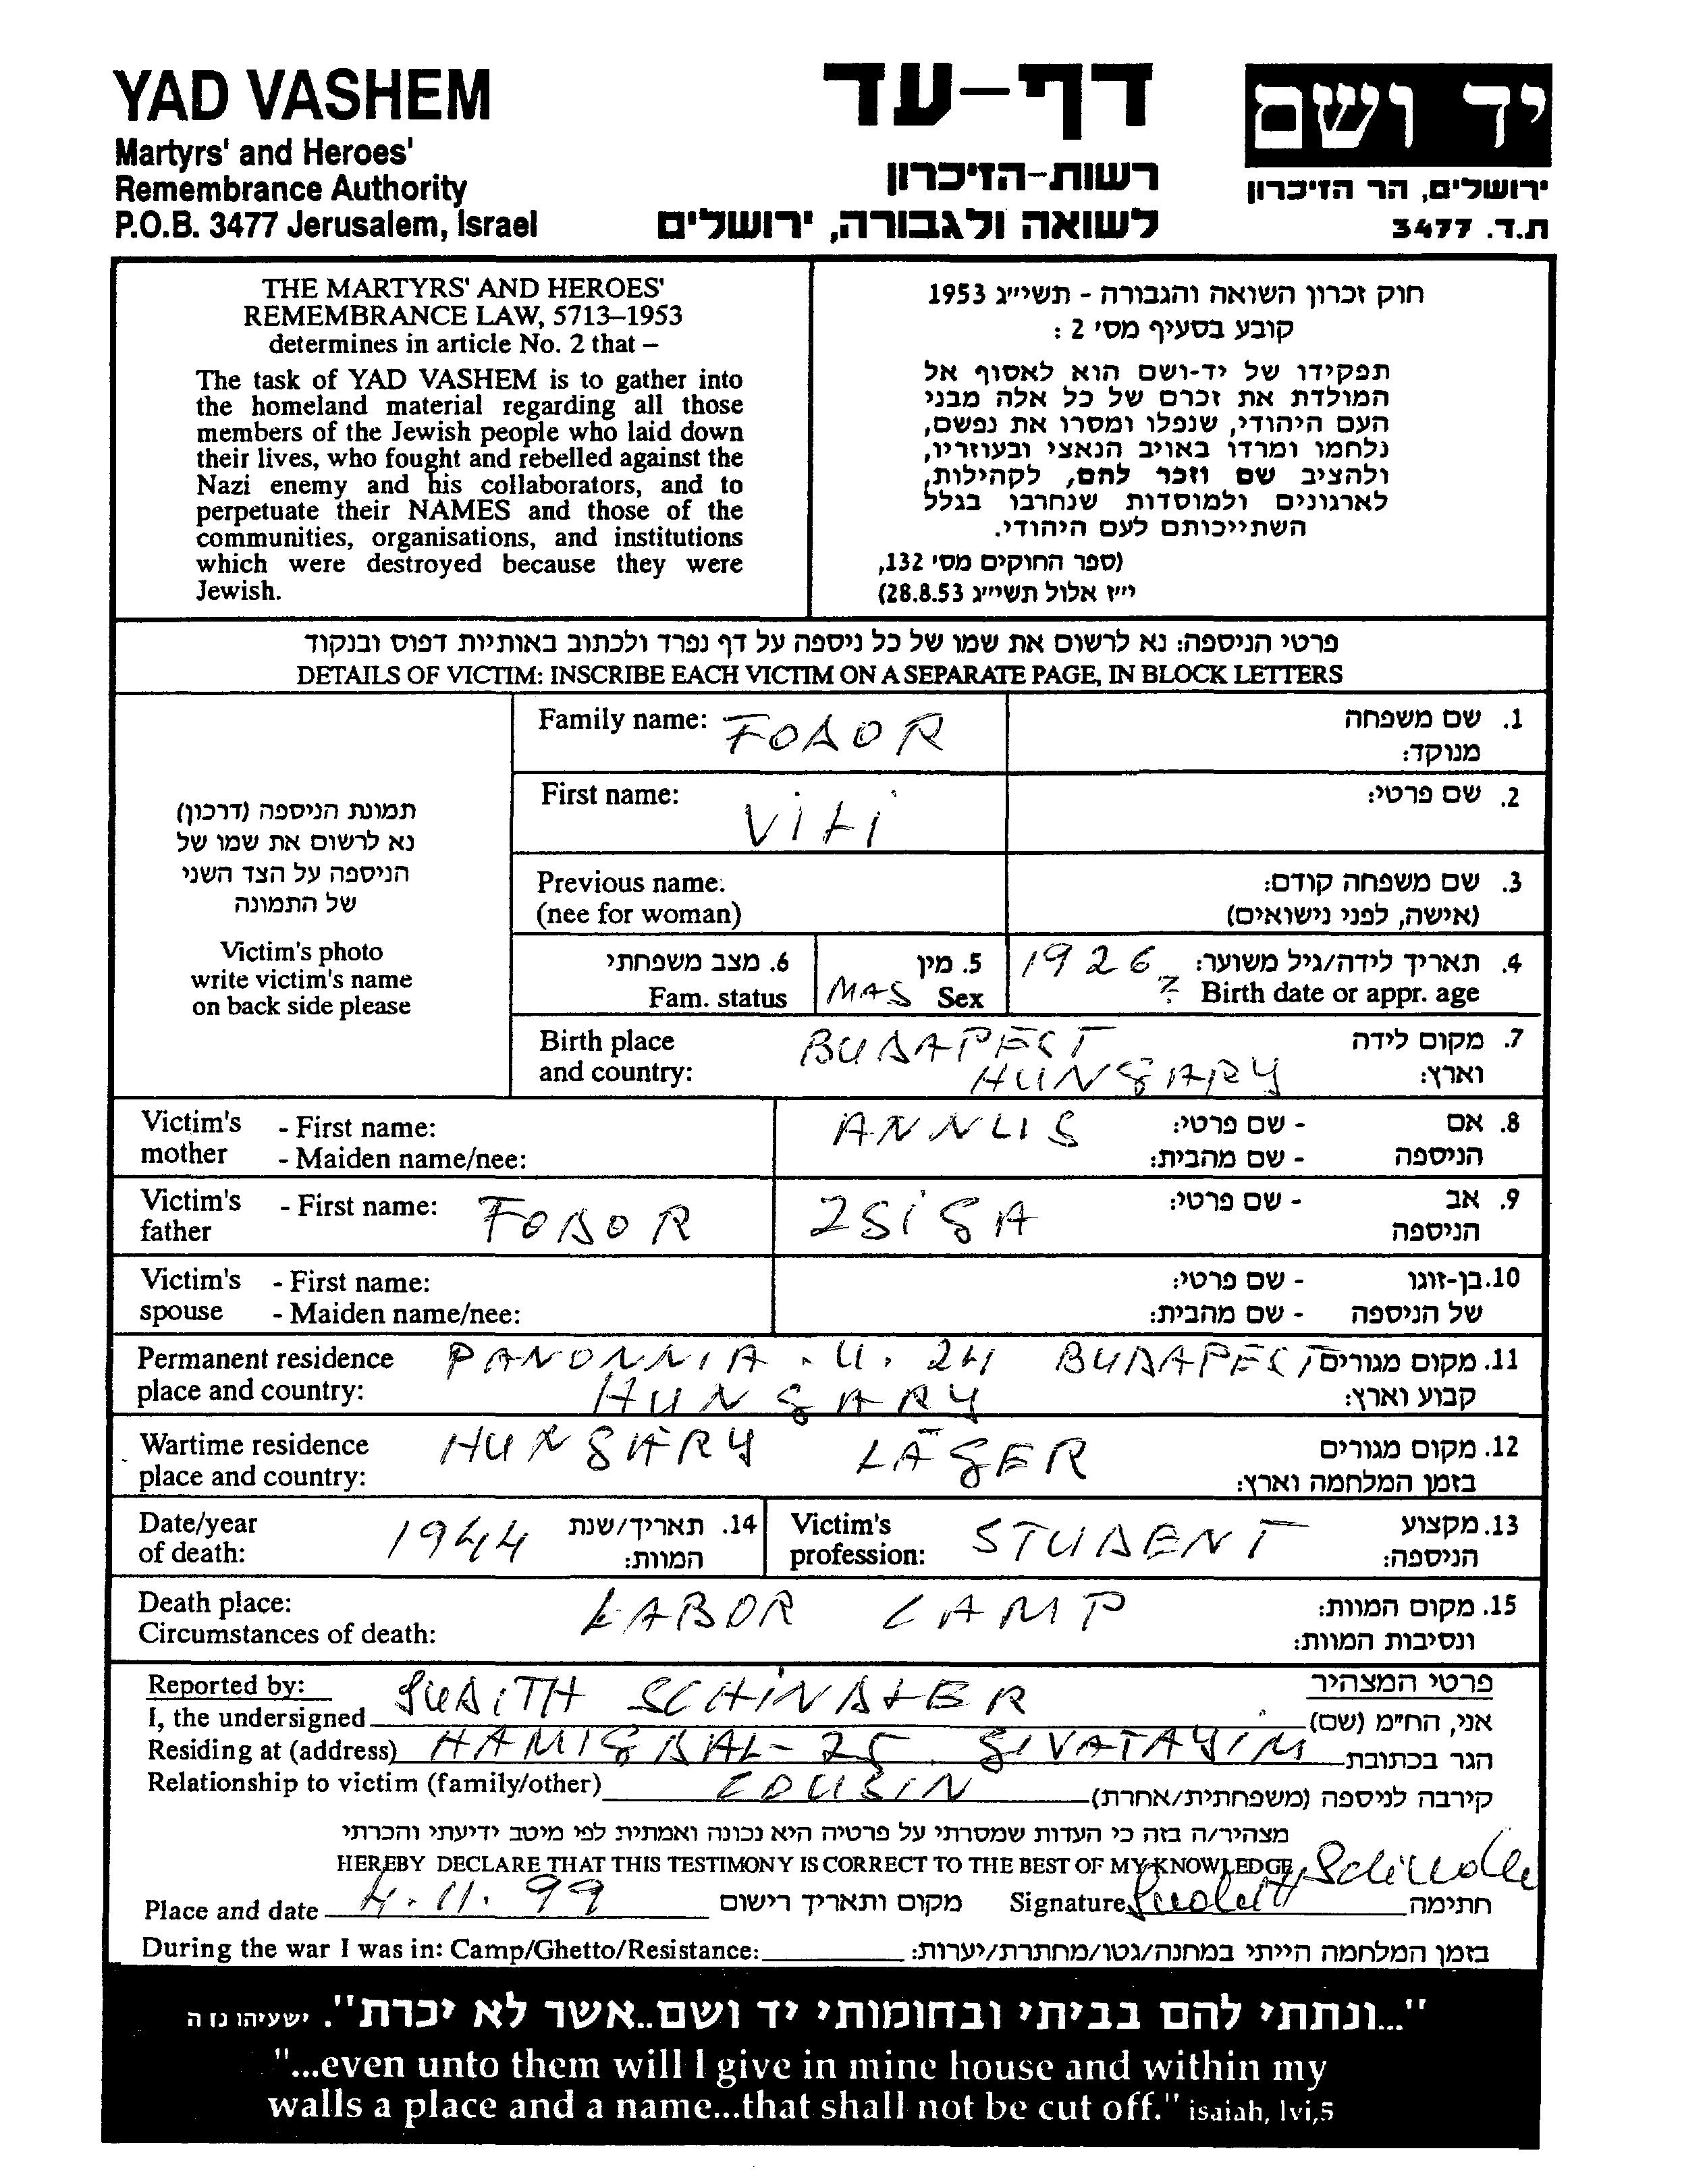 YAD VASHEM
Martyrs' and Heroes'
Remembrance Authority
P.O.B. 3477 Jerusalem, Israel
דף-עד
רשות-הזיכרון
לשואה ולגבורה, ירושלים
יד ושם
ירושלים, הר הזיכרון
ת.ד. 3477
THE MARTYRS' AND HEROES'
REMEMBRANCE LAW, 5713–1953
determines in article No. 2 that –
The task of YAD VASHEM is to gather into
the homeland material regarding all those
members of the Jewish people who laid down
their lives, who fought and rebelled against the
Nazi enemy and his collaborators, and to
perpetuate their NAMES and those of the
communities, organisations, and institutions
which were destroyed because they were
Jewish.
חוק זכרון השואה והגבורה - תשי״ג 1953
קובע בסעיף מס׳ 2 :
תפקידו של יד-ושם הוא לאסוף אל
המולדת את זכרם של כל אלה מבני
העם היהודי, שנפלו ומסרו את נפשם,
נלחמו ומרדו באויב הנאצי ובעוזריו,
ולהציב שם וזכר להם, לקהילות,
לארגונים ולמוסדות שנחרבו בגלל
השתייכותם לעם היהודי.
(ספר החוקים מס׳ 132,
י״ז אלול תשי״ג 28.8.53)
פרטי הניספה: נא לרשום את שמו של כל ניספה על דף נפרד ולכתוב באותיות דפוס ובנקוד
DETAILS OF VICTIM: INSCRIBE EACH VICTIM ON A SEPARATE PAGE, IN BLOCK LETTERS
תמונת הניספה (דרכון)
נא לרשום את שמו של
הניספה על הצד השני
של התמונה
Victim's photo
write victim's name
on back side please
Family name: FODOR 1. שם משפחה
מנוקד:
First name: Viti 2. שם פרטי:
Previous name: 3. שם משפחה קודם:
(nee for woman) (אישה, לפני נישואים)
6. מצב משפחתי 5. מין 1926 4. תאריך לידה/גיל משוער:
Fam. status MAS Sex ? Birth date or appr. age
Birth place BUDAPEST 7. מקום לידה
and country: HUNGARY וארץ:
Victim's - First name: ANNUS - שם פרטי: 8. אם
mother - Maiden name/nee: - שם מהבית: הניספה
Victim's - First name: FODOR ZSIGA - שם פרטי: 9. אב
father הניספה
Victim's - First name: - שם פרטי: 10. בן-זוגו
spouse - Maiden name/nee: - שם מהבית: של הניספה
Permanent residence PANONNIA . U. 24 BUDAPEST 11. מקום מגורים
place and country: HUNGARY קבוע וארץ:
Wartime residence HUNGARY LAGER 12. מקום מגורים
place and country: בזמן המלחמה וארץ:
Date/year 1944 14. תאריך/שנת Victim's STUDENT 13. מקצוע
of death: המוות: profession: הניספה:
Death place: LABOR CAMP 15. מקום המוות:
Circumstances of death: ונסיבות המוות:
Reported by: פרטי המצהיר
I, the undersigned JUDITH SCHINDLER אני, החי״מ (שם)
Residing at (address) HAMIGDAL - 25 GIVATAYIM הגר בכתובת
Relationship to victim (family/other) COUSIN קירבה לניספה (משפחתית/אחרת)
מצהיר/ה בזה כי העדות שמסרתי על פרטיה היא נכונה ואמתית לפי מיטב ידיעתי והכרתי
HEREBY DECLARE THAT THIS TESTIMONY IS CORRECT TO THE BEST OF MY KNOWLEDGE
Place and date 4.11.99 מקום ותאריך רישום Signature Judith Schindler חתימה
During the war I was in: Camp/Ghetto/Resistance: בזמן המלחמה הייתי במחנה/גטו/מחתרת/יערות:
"...ונתתי להם בביתי ובחומותי יד ושם..אשר לא יכרת". ישעיהו נז ה
"...even unto them will I give in mine house and within my
walls a place and a name...that shall not be cut off." isaiah, lvi,5